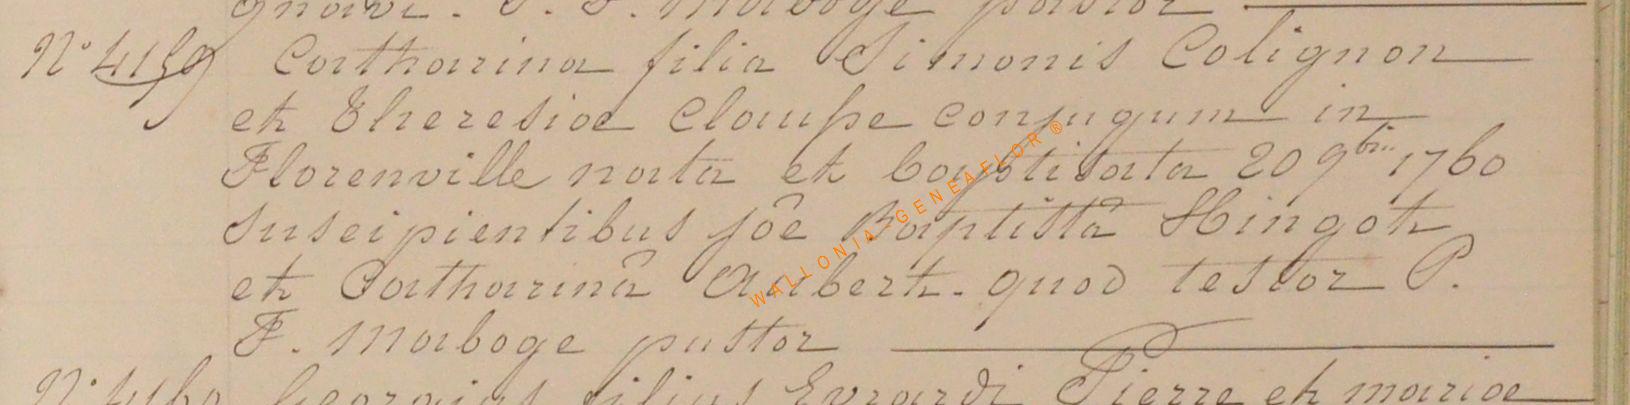 gnavi. P. F. Maboge pastor
N° 4159 Catharina filia Simonis Colignon
et Theresiae Clausse conjugum in
Florenville nata et baptisata 20 9bris 1760
suscipientibus jôe Baptistâ Hingot
et Catharinâ Aubert. quod testor P.
F. Maboge pastor
N° 4160 Georgius filius Evrardi Pierre et mariae
WALLONIA-GENEAFLOR®